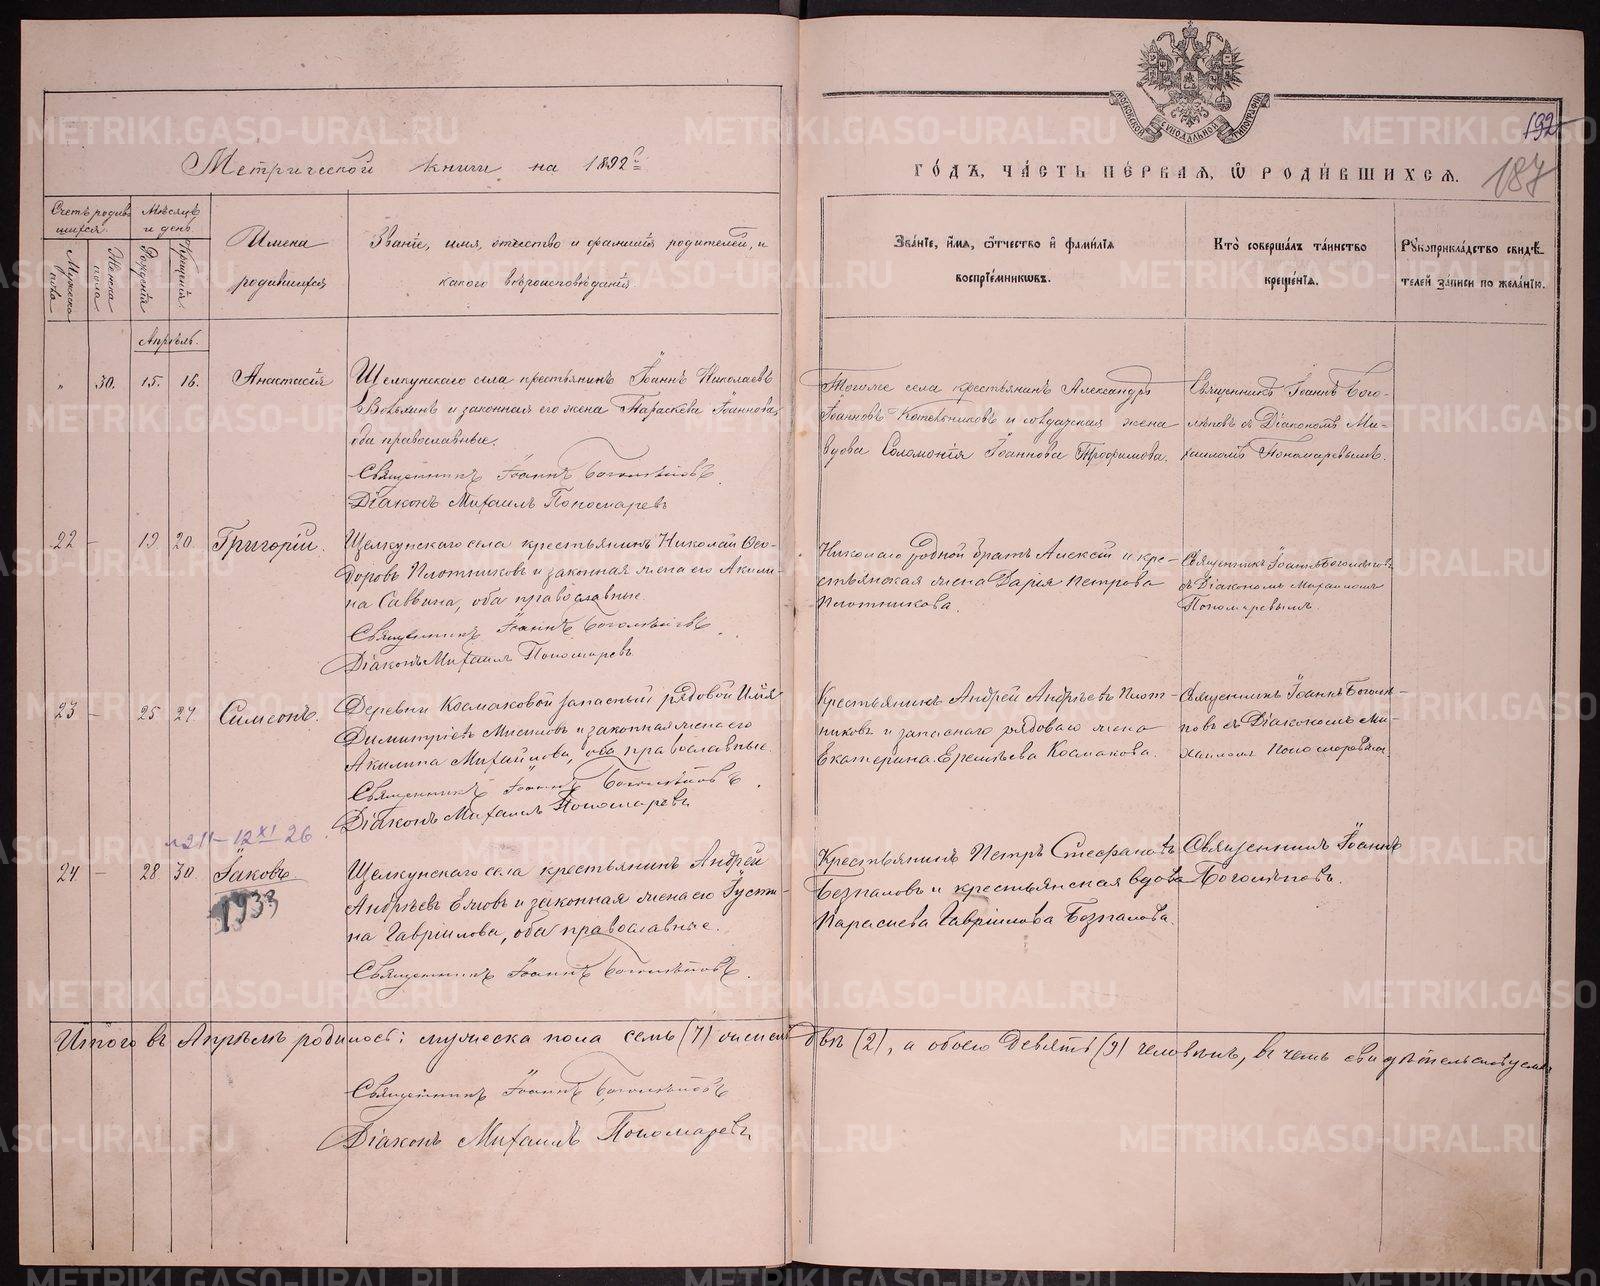 Метрической книги на 1892 г.
МОСКОВСКОЙ СѴНОДАЛЬНОЙ ТИПОГРАФІИ
192
187
ГО́ДЪ, ЧА́СТЬ ПЕ́РВАѦ, Ѽ РОДИ́ВШИХСѦ.
Счетъ родив-
шихся.
Мужеска пола
Женска пола
Мѣсяцъ
и день.
Рожденія
Крещенія
Имена
родившихся
Званіе, имя, отчество и фамилія родителей, и
какого вѣроисповѣданія.
Зва́нїе, и́мѧ, ѻ҆́тчество и҆ фамилїѧ
воспрїе́мникѡвъ.
Кто̀ соверша́лъ та́инство
креще́нїѧ.
Рꙋкоприкла́дство свидѣ́-
телей за́писи по жела́нїю.
Апрѣль.
„ 30. 15. 16. Анастасія
Щелкунскаго села крестьянинъ Іоаннъ Николаевъ
и законная его жена Параскева Іоаннова,
оба православные.
Священникъ Іоаннъ Боголѣповъ.
Діаконъ Михаилъ Пономаревъ
Тогоже села крестьянинъ Александръ
Іоанновъ Котельниковъ и солдатская жена
вдова Соломонія Іоаннова Трофимова.
Священникъ Іоаннъ Бого-
лѣповъ съ Діакономъ Ми-
хаиломъ Пономаревымъ.
22 – 19 20 Григорій.
Щелкунскаго села крестьянинъ Николай Ѳео-
доровъ Плотниковъ и законная жена его Акили-
на Саввина, оба православные.
Священникъ Іоаннъ Боголѣповъ.
Діаконъ Михаилъ Пономаревъ
Николаю родной братъ Алексій и кре-
стьянская жена Дарія Петрова
Плотникова.
Священникъ Іоаннъ Боголѣповъ
съ Діакономъ Михаиломъ
Пономаревымъ.
23 – 25 27 Симеонъ.
Деревни Космаковой запасный рядовой Илія
Димитріевъ и законная жена его
Акилина Михайлова, оба православные.
Священникъ Іоаннъ Боголѣповъ.
Діаконъ Михаилъ Пономаревъ
Крестьянинъ Андрей Андреевъ Плот-
никовъ и запаснаго рядоваго жена
Екатерина Космакова.
Священникъ Іоаннъ Боголѣ-
повъ съ Діакономъ Ми-
хаиломъ Пономаревымъ
211 – 12 XI 26
24 – 28 30 Іаковъ.
1933
Щелкунскаго села крестьянинъ Андрей
Андреевъ и законная жена его Іусти-
на Гавриилова, оба православные.
Священникъ Іоаннъ Боголѣповъ.
Крестьянинъ Петръ Стефановъ
Безпаловъ и крестьянская вдова
Параскева Гавріилова Безпалова.
Священникъ Іоаннъ
Боголѣповъ.
Итого въ Апрѣлѣ родилось: мужеска пола семь (7) женска двѣ (2), а обоего девять (9) человѣкъ, въ чемъ свидѣтельствуемъ
Священникъ Іоаннъ Боголѣповъ
Діаконъ Михаилъ Пономаревъ
METRIKI.GASO-URAL.RU